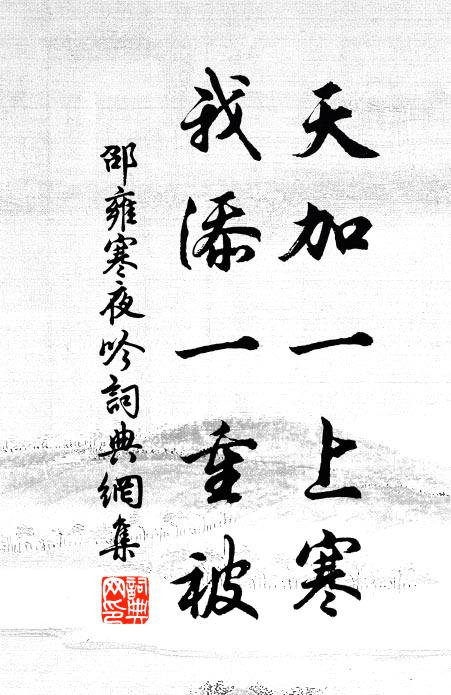 天加一上寒
我添一重被
邵雍寒夜吟詞典網集
詞典
网印